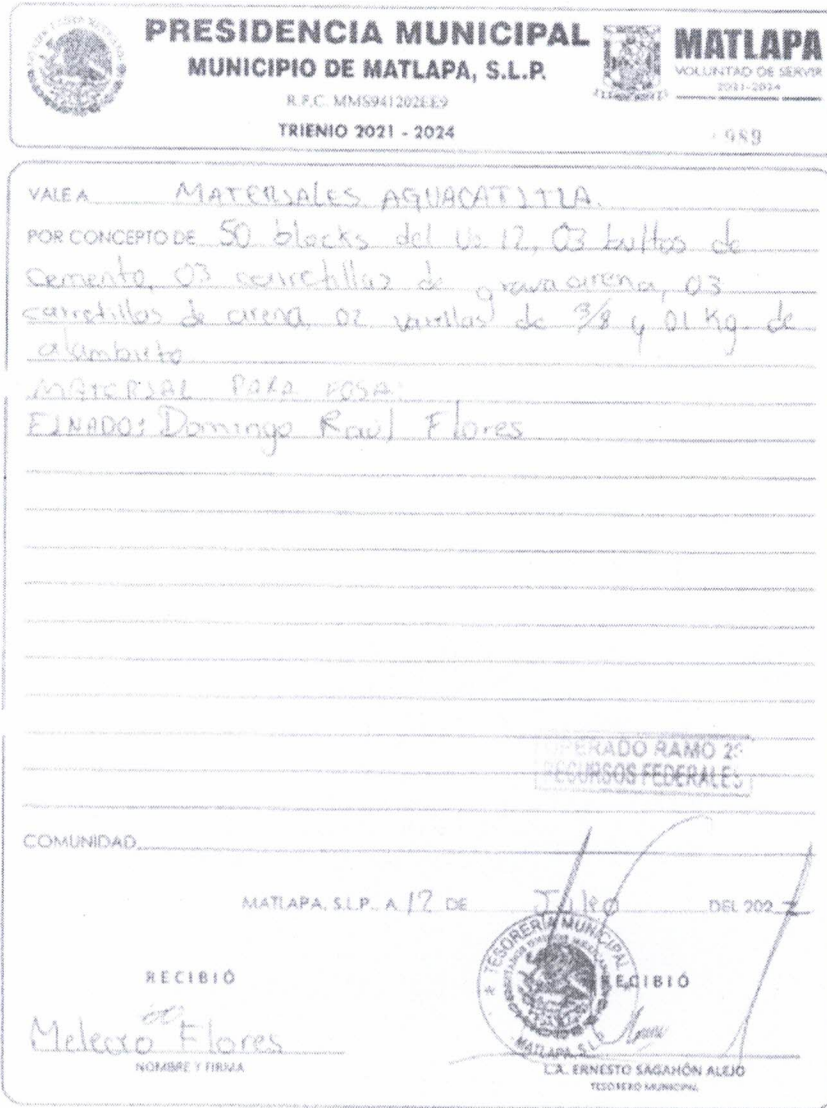 PRESIDENCIA MUNICIPAL
MUNICIPIO DE MATLAPA, S.L.P.
R.F.C. MMS941202EE9
TRIENIO 2021 - 2024
MATLAPA
VOLUNTAD DE SERVIR
2021-2024
989
VALE A MATERIALES AGUACATITLA.
POR CONCEPTO DE 50 blocks del No 12, 03 bultos de
cemento, 03 carretillas de grava arena, 03
carretillas de arena, 02 varillas de 3/8 y 01 Kg. de
MATERIAL PARA FOSA:
FINADO: Domingo Raúl Flores
OPERADO RAMO
RECURSOS FEDERALES
COMUNIDAD
MATLAPA, S.L.P., A 12 DE Julio DEL 202
RECIBIÓ
Flores
NOMBRE Y FIRMA
TESORERIA MUNICIPAL
ESTADOS UNIDOS MEXICANOS
MATLAPA, S.L.P.
RECIBIÓ
L.A. ERNESTO SAGAHÓN ALEJO
TESORERO MUNICIPAL